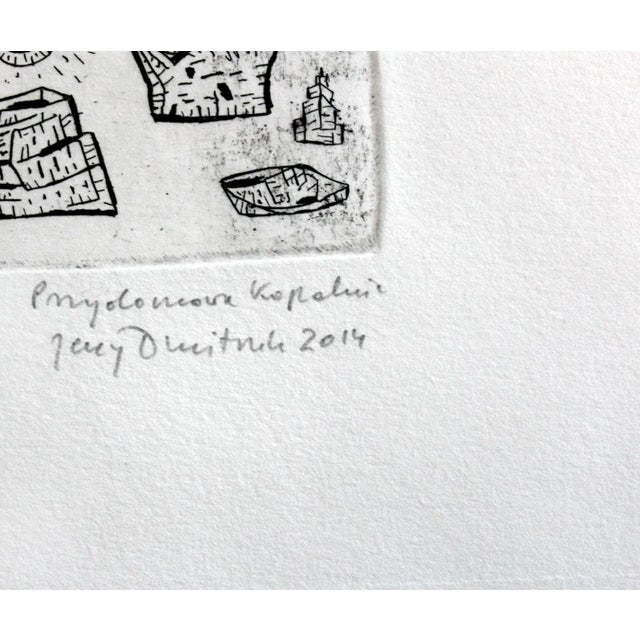 Przydomowa Kopalnia
Jerzy Dmitruk 2014